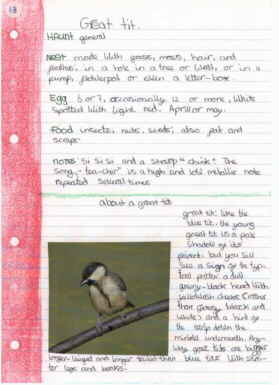 13
Great tit.
HAUNT general
Nest made with grass, moss, hair, and
in a hole in a tree or Wall, or in a
pump, or even a letter-box.
Egg 6 or 7, occasionally 12 or more, White
spotted With Light red. April or may.
Food insects, nuts, seeds, also fat and
scraps
notes "si si si and a sharp "chink! The
song, "tea-cher" is a high and metallic note
repeated several times
about a great tit
great tit: Like the
blue tit, the young
great tit is a pale
of its
parent: but you still
see a sign of the
pattern: a dull
greyy-black head With
yellowish cheeks
than greyy, black and
white) and a hint of
the stripe down the
middle underneath.
great tits are bigger
longer-legged and longer tailed than blue tits With
legs and beaks.